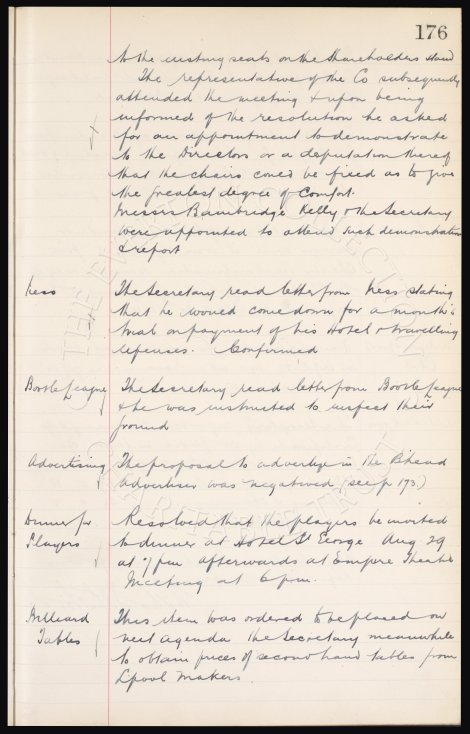 176
to the existing seats on the Shareholders stand
The representative of the Co subsequently
attended the meeting & upon being
informed of the resolution he asked
for an appointment to demonstrate
to the Directors or a deputation thereof
that the chairs could be fixed as to give
the greatest degree of comfort.
Messrs Bainbridge Kelly & the Secretary
were appointed to attend such demonstration
& report
Hess The Secretary read letter from Hess stating
that he would come down for a month's
trial on payment of his Hotel & travelling
expenses. Confirmed
Bootle League The Secretary read letter from Bootle League
& he was instructed to inspect their
ground
Advertising The proposal to advertise in the B'head
Advertiser was negatived (see p 173.)
Dinner for Players Resolved that the players be invited
to dinner at Hotel St George Aug 29
at 7 pm afterwards at Empire Theatre
Meeting at 6 pm.
Billiard Tables This item was ordered to be placed on
next agenda the Secretary meanwhile
to obtain prices of second hand tables from
Lpool makers.
THE EVERTON COLLECTION
CHARITABLE TRUST